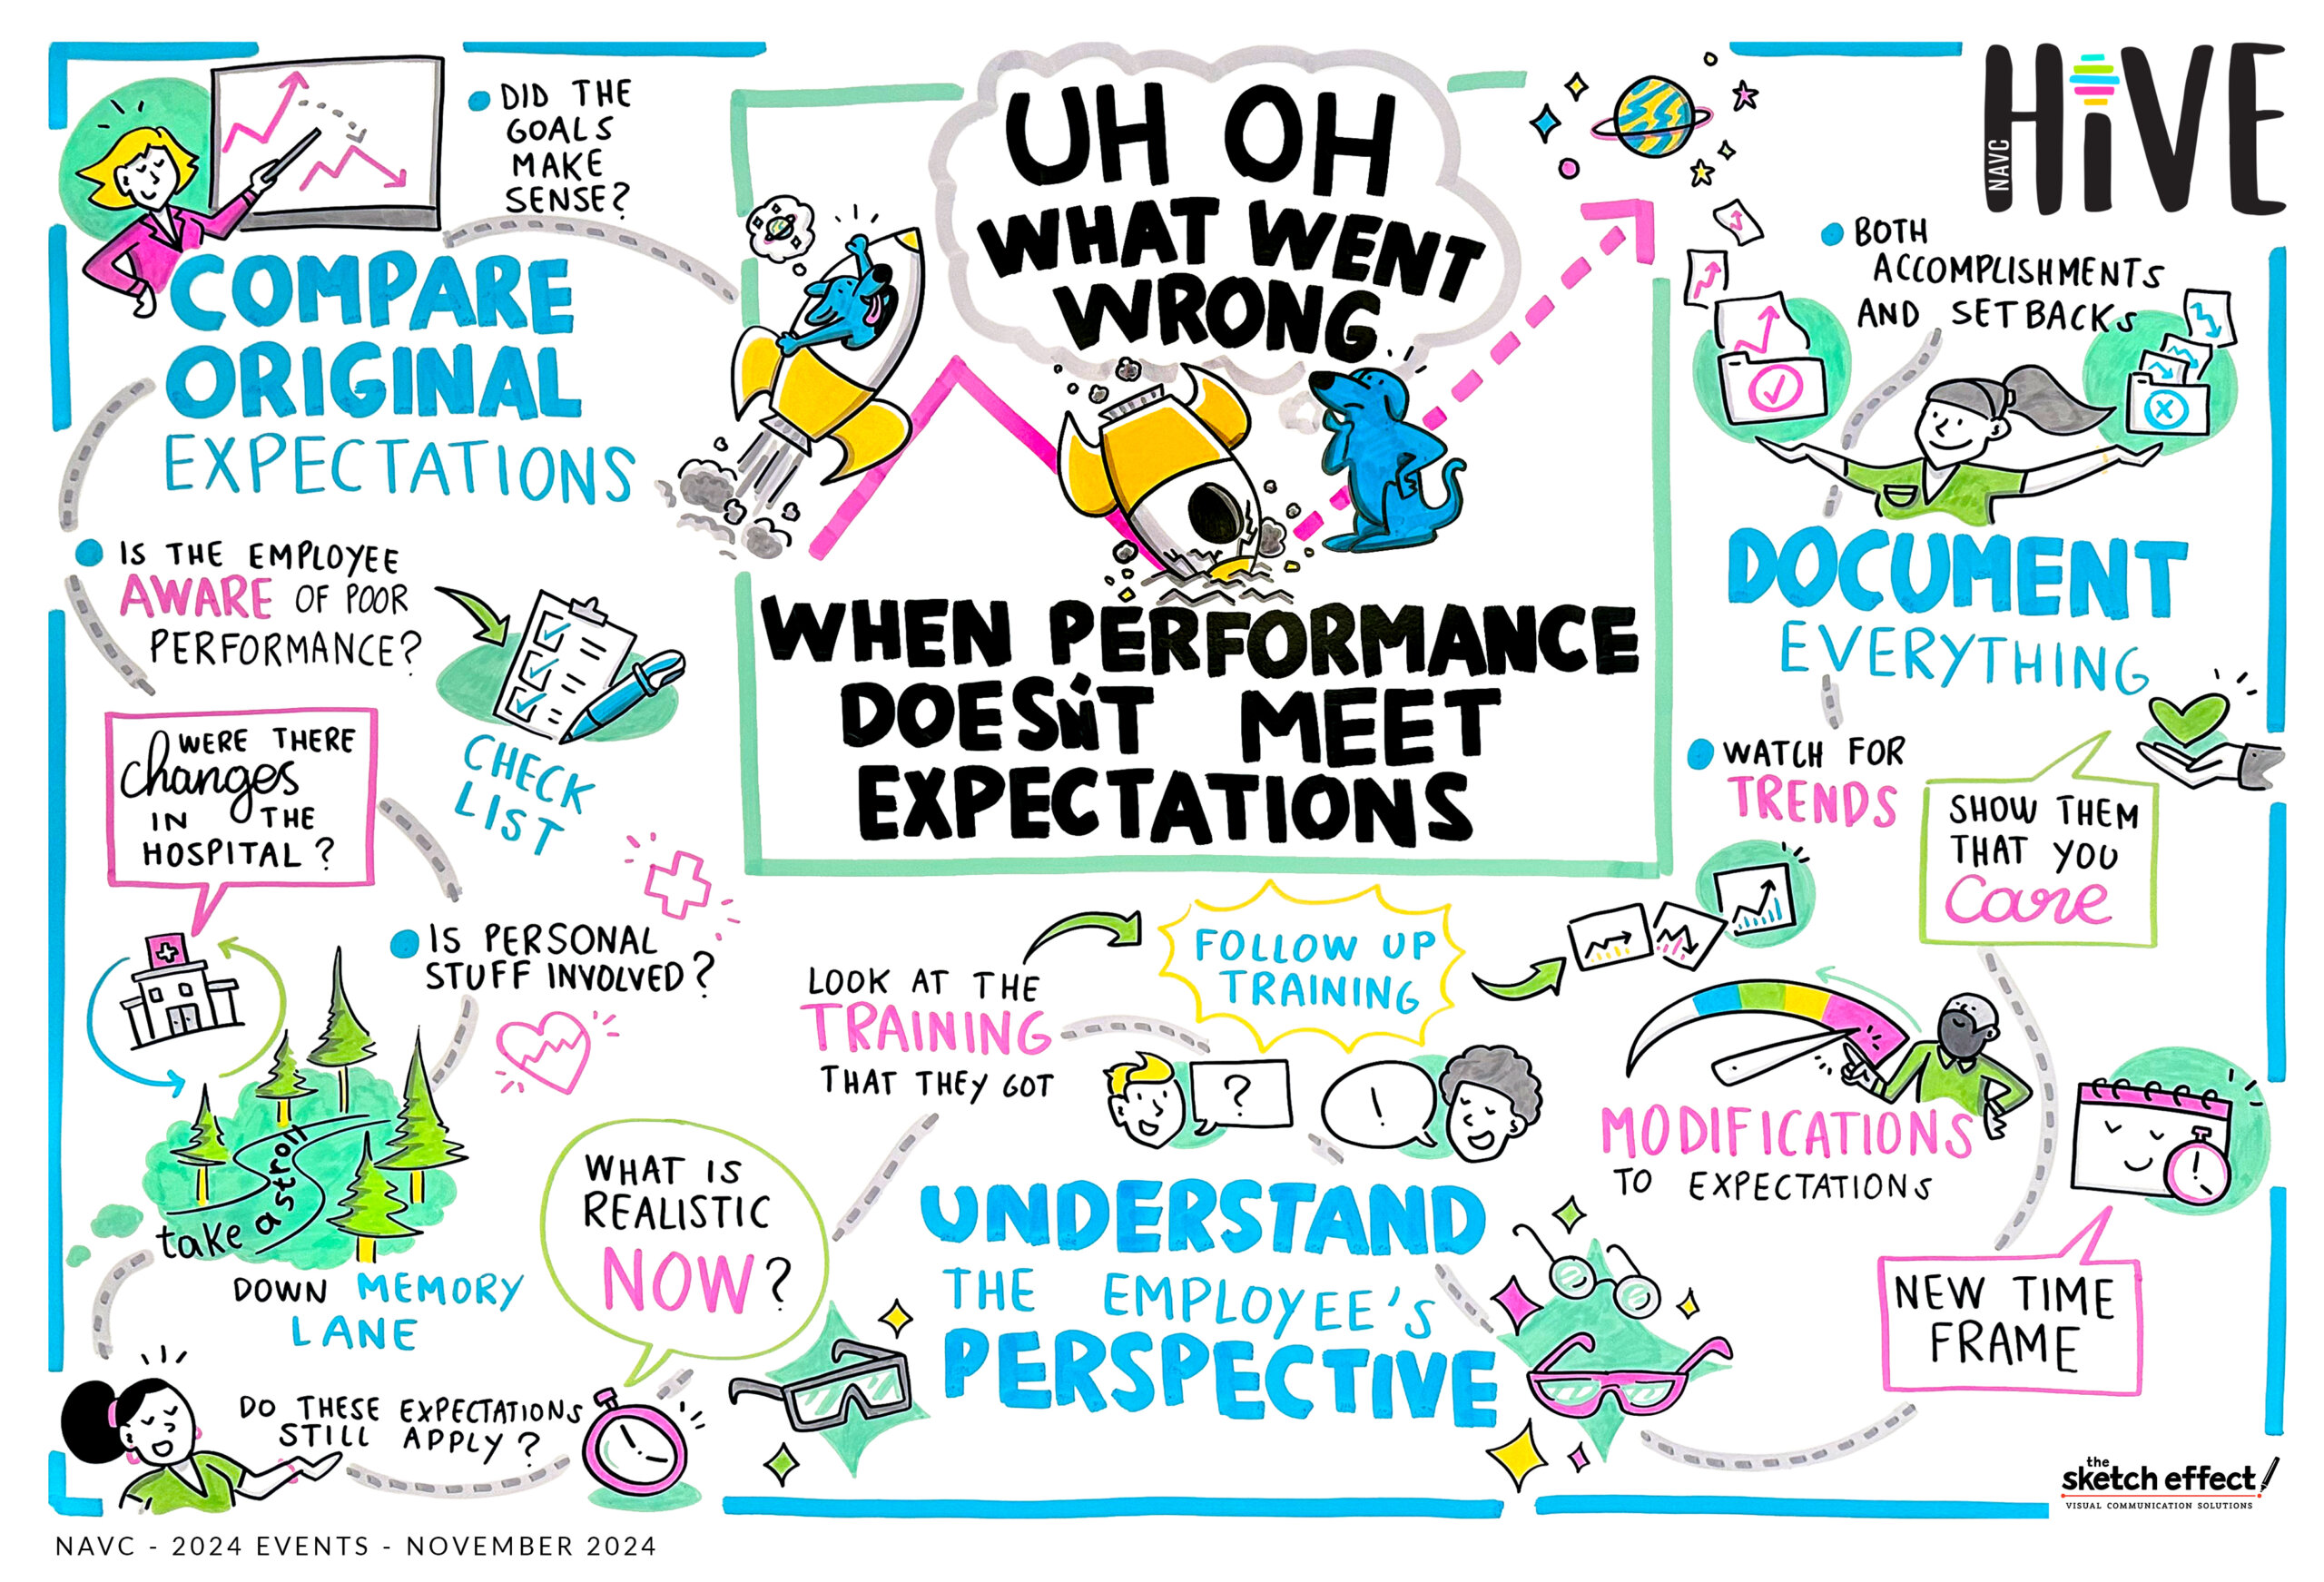 UH OH
WHAT WENT
WRONG
WHEN PERFORMANCE
DOESN'T MEET
EXPECTATIONS
NAVC
HiVE
DID THE
GOALS
MAKE
SENSE?
COMPARE
ORIGINAL
EXPECTATIONS
IS THE EMPLOYEE
AWARE OF POOR
PERFORMANCE?
CHECK
LIST
WERE THERE
changes
IN THE
HOSPITAL?
IS PERSONAL
STUFF INVOLVED?
take a stroll
DOWN MEMORY
LANE
DO THESE EXPECTATIONS
STILL APPLY?
WHAT IS
REALISTIC
NOW?
LOOK AT THE
TRAINING
THAT THEY GOT
FOLLOW UP
TRAINING
?
!
UNDERSTAND
THE EMPLOYEE'S
PERSPECTIVE
BOTH
ACCOMPLISHMENTS
AND SETBACKS
DOCUMENT
EVERYTHING
WATCH FOR
TRENDS
SHOW THEM
THAT YOU
Care
MODIFICATIONS
TO EXPECTATIONS
NEW TIME
FRAME
the
sketch effect
VISUAL COMMUNICATION SOLUTIONS
NAVC - 2024 EVENTS - NOVEMBER 2024